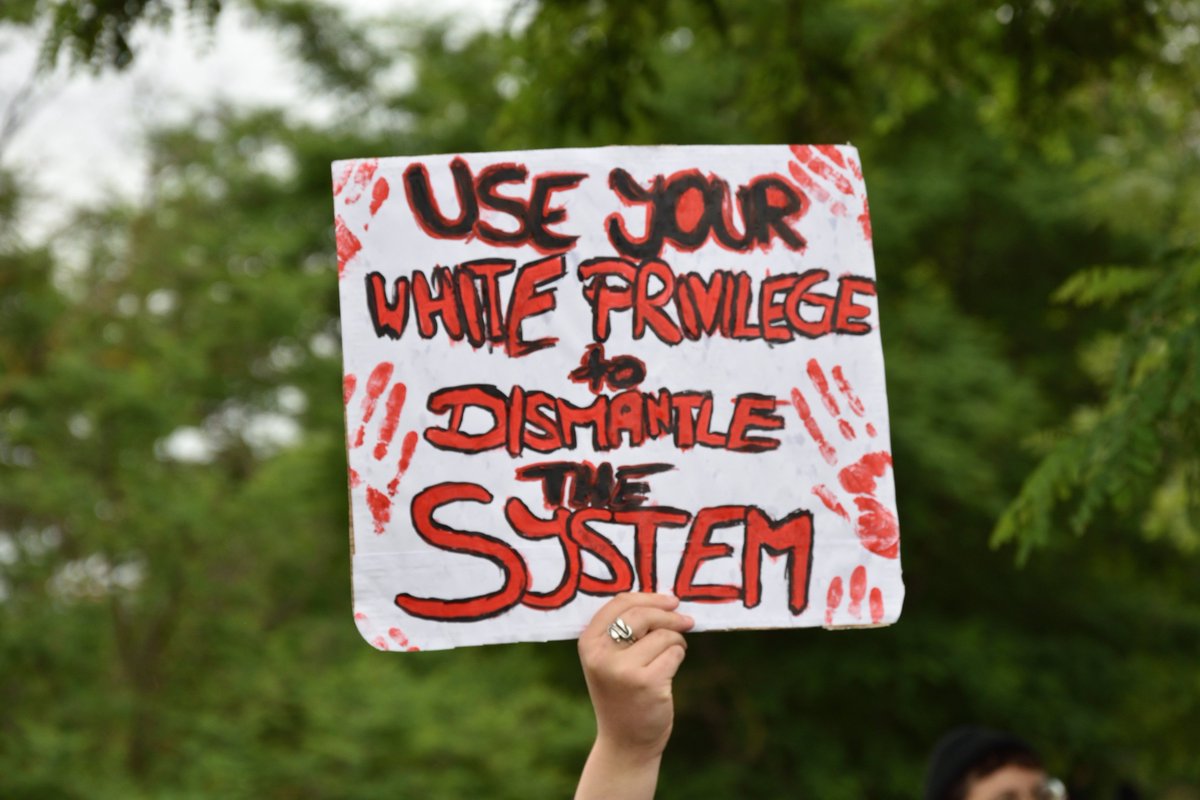 USE YOUR
WHITE PRIVILEGE
to
DISMANTLE
THE
SYSTEM